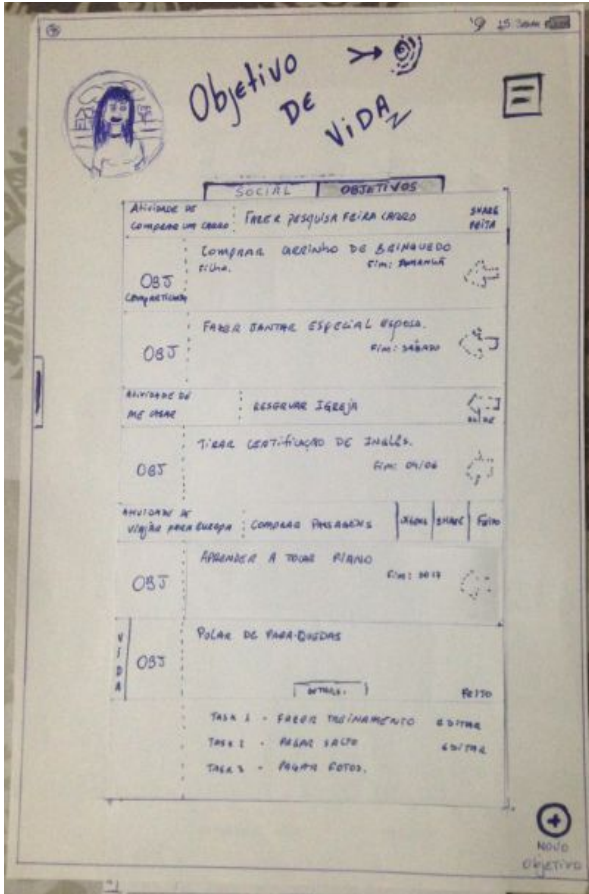 Objetivo
DE
ViDA
SOCIAL OBJETIVOS
Atividade de
Comprar um carro FAZER PESQUISA FEIRA CARRO SHARE
FEITA
OBJ
Compartilhado
COMPRAR CARRINHO DE BRINQUEDO
Filha. Fim: AMANHÃ
OBJ
FAZER JANTAR ESPECIAL ESPOSA.
Fim: SÁBADO
Atividade de
ME CASAR RESERVAR IGREJA
OBJ
TIRAR CERTIFICAÇÃO DE INGLÊS.
Fim: 04/06
Atividade de
Viajão para Europa COMPRAR PASSAGENS SHARE Feito
OBJ
APRENDER A TOCAR PIANO
Fim: 2017
VIDA
OBJ
PULAR DE PARA-QUEDAS
FEITO
TASK 1 - FAZER TREINAMENTO EDITAR
TASK 2 - PAGAR SALTO EDITAR
TASK 3 - PAGAR FOTOS.
NOVO
Objetivo